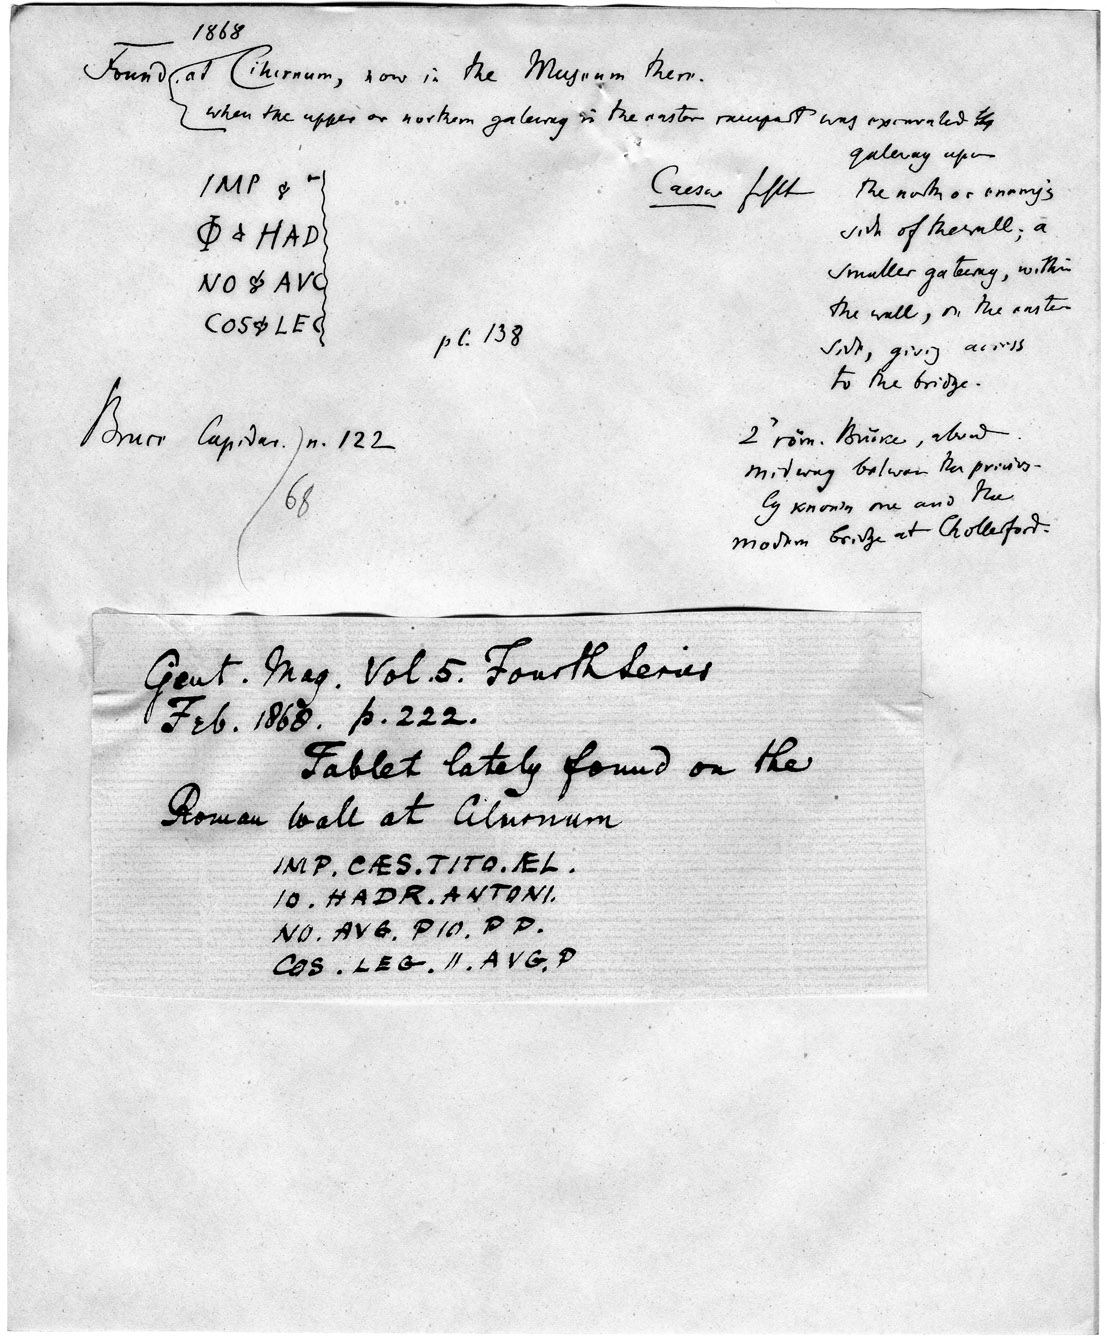 1868
Found at Cilurnum, now in the Museum there.
when the upper or northern gateway in the eastern rampart was excavated
gateway upon
the north or enemy's
side of the wall; a
smaller gateway, within
the wall, on the eastern
side, giving access
to the bridge.
IMP &
Φ & HAD
NO & AVG
COS & LEG
Caesar fehlt
pl. 138
Bruce Lapidar. n. 122
68
2' röm. Brücke, about
midway between the previous-
ly known one and the
modern bridge at Chollerford.
Gent. Mag. Vol. 5. Fourth Series
Feb. 1868. p. 222.
Tablet lately found on the
Roman wall at Cilurnum
IMP. CÆS. TITO. ÆL.
IO. HADR. ANTONI.
NO. AVG. PIO. P P.
COS. LEG. II. AVG. P